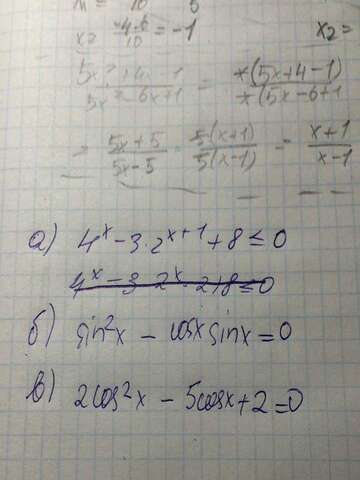 x₂ = (-4-6)/10 = -1 x₂ =
(5x²+4x-1)/(5x²-6x+1) = x(5x+4-1)/x(5x-6+1)
= (5x+5)/(5x-5) = 5(x+1)/5(x-1) = (x+1)/(x-1)
а) 4ˣ - 3·2ˣ⁺¹ + 8 ≤ 0
4ˣ - 3·2ˣ·2 + 8 ≤ 0
б) sin²x - cosx sinx = 0
в) 2cos²x - 5cosx + 2 = 0